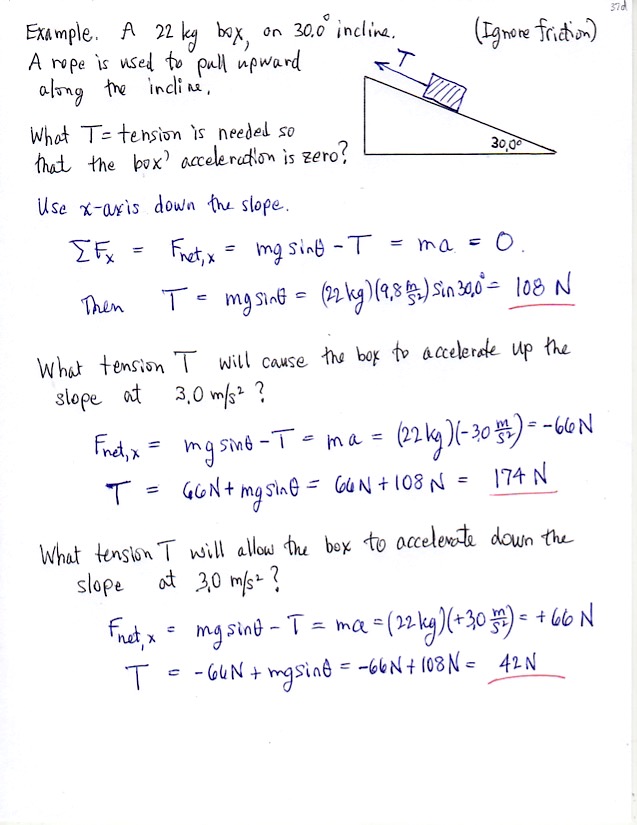 37d
Example. A 22 kg box, on 30.0° incline. (Ignore friction)
A rope is used to pull upward
along the incline.
T
30.0°
What T = tension is needed so
that the box' acceleration is zero?
Use x-axis down the slope.
ΣFx = Fnet,x = mg sinθ - T = ma = 0.
Then T = mg sinθ = (22 kg)(9.8 m/s²) sin 30.0° = 108 N
What tension T will cause the box to accelerate up the
slope at 3.0 m/s² ?
Fnet,x = mg sinθ - T = ma = (22 kg)(-3.0 m/s²) = -66 N
T = 66N + mg sinθ = 66N + 108 N = 174 N
What tension T will allow the box to accelerate down the
slope at 3.0 m/s² ?
Fnet,x = mg sinθ - T = ma = (22 kg)(+3.0 m/s²) = +66 N
T = -66N + mg sinθ = -66N + 108N = 42 N